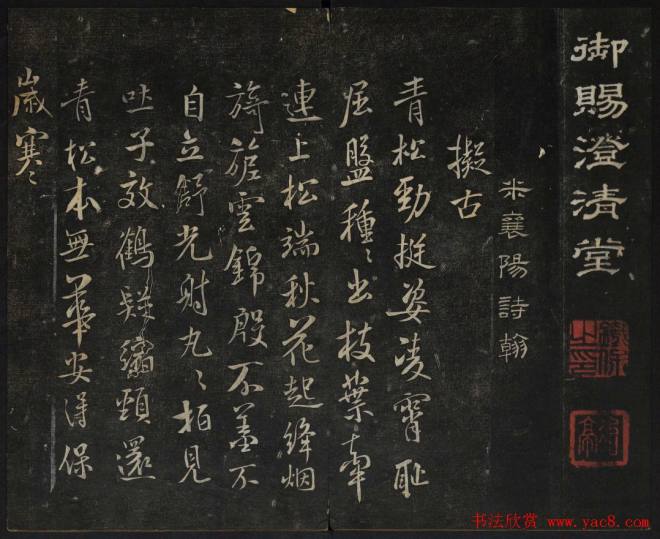 御賜澄清堂
米襄陽詩翰
擬古
青松勁挺姿凌霄恥
屈盤種〻出枝葉牽
連上松端秋花起絳烟
旖旎雲錦殷不羞不
自立舒光射丸〻柏見
吐子效鶴疑縮頸還
青松本無華安得保
歲寒
书法欣赏 www.yac8.com